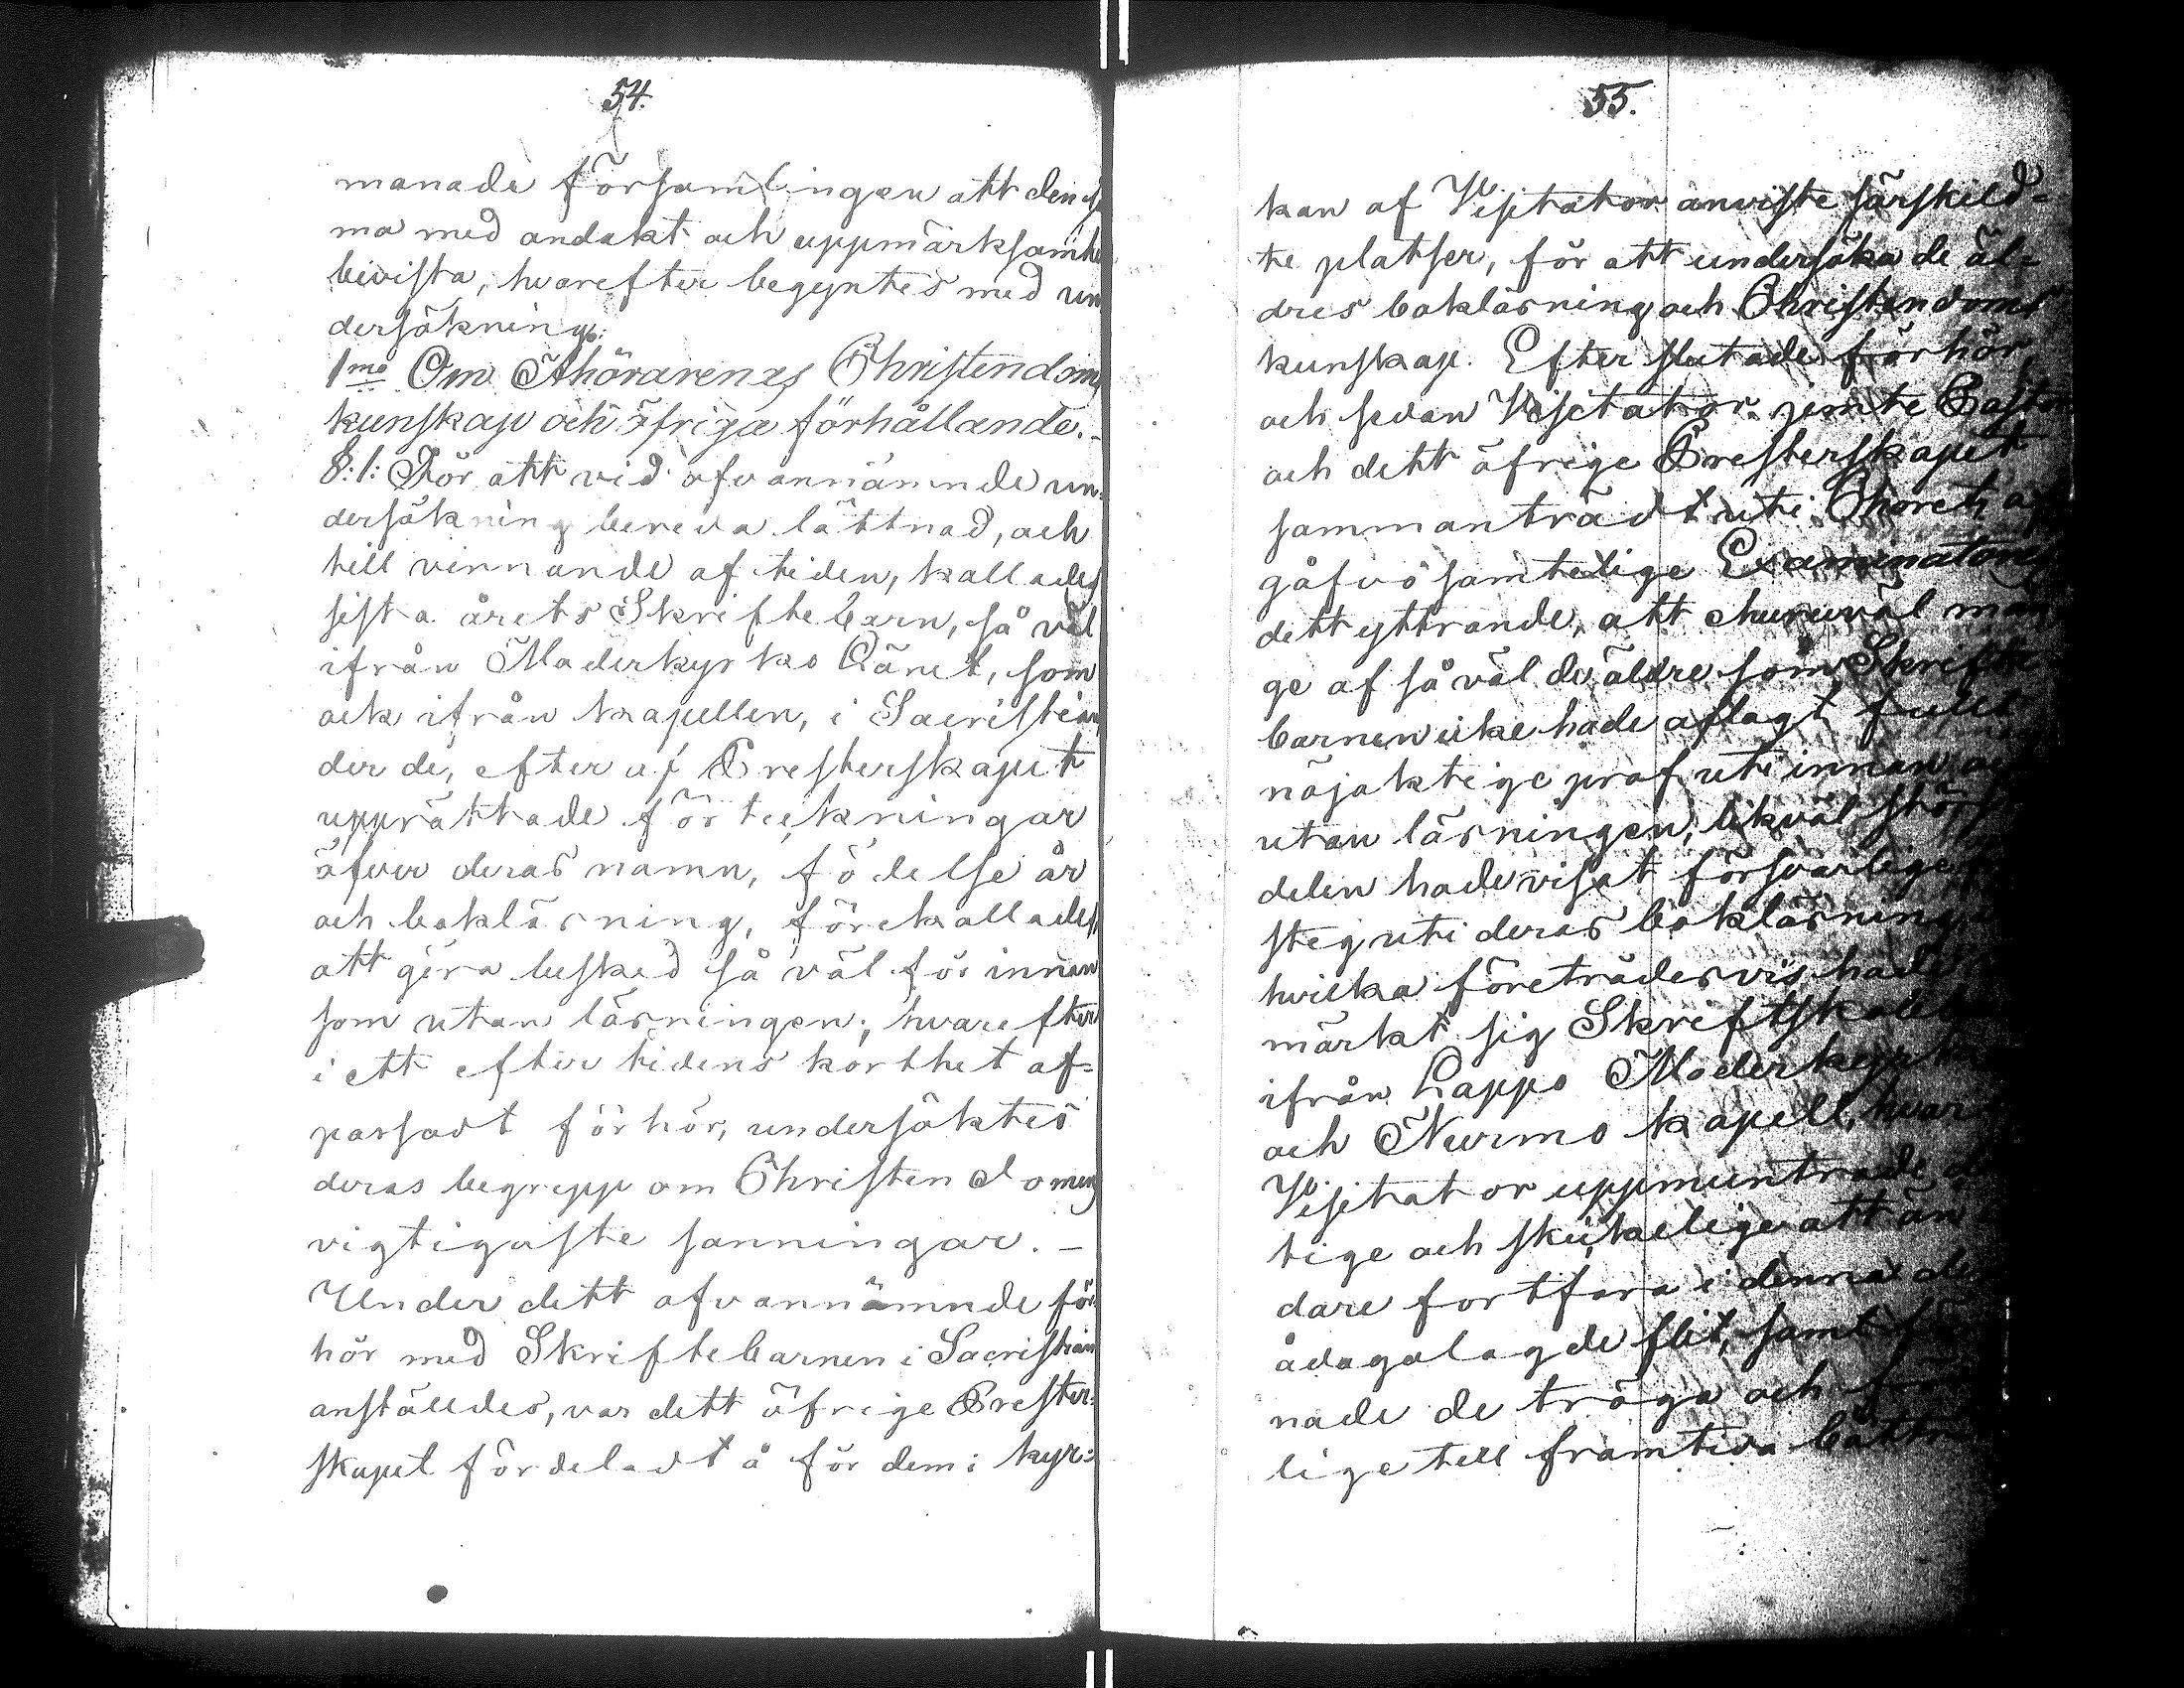 54.
manade församlingen att den sa
ma med andakt och uppmärksamhe
bevista, hvarefter begyntes med un
dersökning:
1mo Om Åhörarenas Christendoms
kunskap och öfriga förhållande.-
§:1: För att vid ofvannämnde un-
dersökning bereda lättnad, och
till vinnande af tiden, kallades
sista årets Skriftebarn, så väl
ifrån Moderkyrko Länet, som
ock ifrån kapellen, i Sacristian,
der de, efter af Presterskapet
upprättade förteckningar
öfver deras namn, födelse år
och bokläsning, förekallades,
att göra besked så väl för innan
som utan läsningen; hvarefter
i ett efter tidens korthet af-
passadt förhör, undersöktes
deras begrepp om Christendomens
vigtigaste sanningar. -
Under dett ofvannämnde för-
hör med Skriftebarnen i Sacristian
anställdes, var dett öfrige Prester-
skapet fördeladt å för dem i kyr-
55.
kan af Visitator anviste särskild-
te platser, för att undersöka de äl-
dres bokläsning och Christendoms
kunskap. Efter slutade förhör,
och sedan Visitator jemte Pastor
och dett öfrige Presterskapet
sammanträdt uti Choret, a
gåfvo samtelige Examinatores
dett yttrande, att churuväl mån
ge af så väl de äldre som Skrifte
barnen icke hade aflagt fullt
nöjaktige prof uti innan oc
utan läsningen, likväl stör
delen hade visat försvarlige
steg uti deras bokläsning,
hvilka företrädesvis hade
märkt sig Skriftskole
ifrån Lappo Moderkyrko
och Nurmo kapell, hvar
Visitator uppmuntrade d
tige och skickelige att än
dare fortfara i denna de
ådagalagde flit, samt
nade de tröga och
lige till framtida bättr